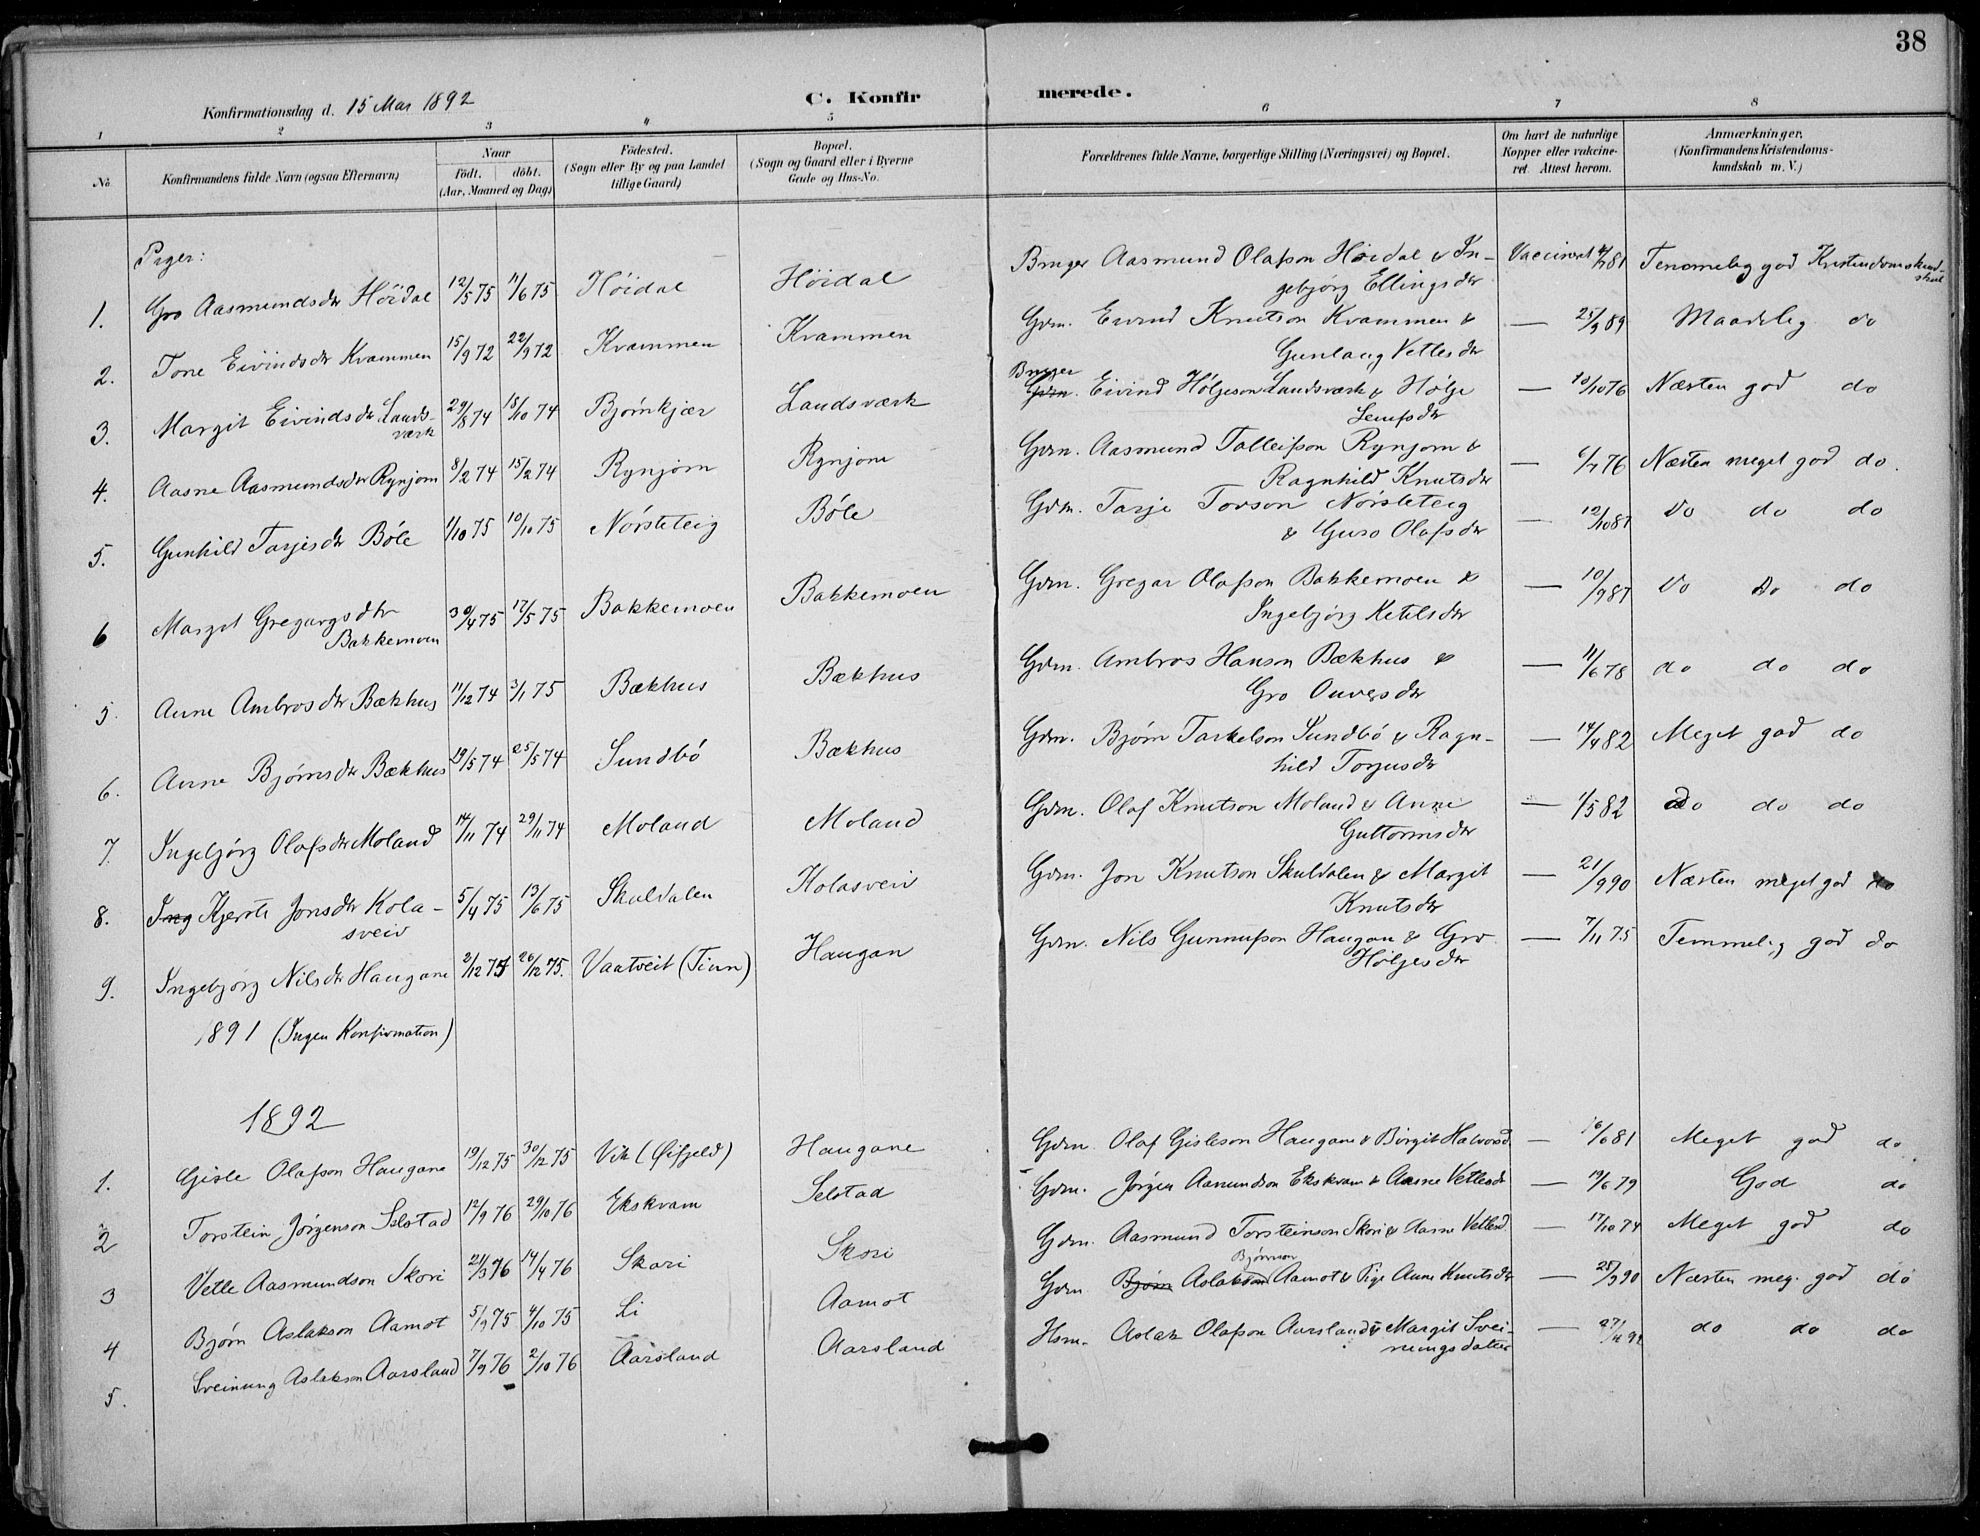 38
Konfirmationsdag d. 15 Mai 1892
C. Konfirmerede.
1 2 3 4 5 6 7 8
No. Konfirmandens fulde Navn (ogsaa Efternavn) Naar födt. döbt. (Aar, Maaned og Dag) Födested. (Sogn eller By og paa Landet tillige Gaard) Bopæl. (Sogn og Gaard eller i Byerne Gade og Hus-No. Forældrenes fulde Navne, borgerlige Stilling (Næringsvei) og Bopæl. Om havt de naturlige Kopper eller vaccineret Attest herom. Anmærkninger. (Konfirmandens Kristendomskundskab m. V.)
Piger:
1. Gro Aasmundsdtr Höidal 12/5 75 11/6 75 Höidal Höidal Bruger Aasmund Olafson Höidal & Ingebjörg Ellingsdtr Vaccineret 81 Temmelig god Kristendomskundskab
2. Tone Eivindsdtr Kvammen 15/9 72 22/9 72 Kvammen Kvammen Gdm. Eivind Knutson Kvammen & Gunlaug Vetlesdtr — 25/9 89 Maadelig do
3. Margit Eivindsdtr Landsværk 29/8 74 18/10 74 Bjørnkjær Landsværk Bruger Gdm. Eivind Höljeson Landsværk & Hölje — 10/10 76 Næsten god do
4. Aasne Aasmundsdtr Rynjom 8/2 74 15/2 74 Rynjom Rynjom Gdm. Aasmund Talleifson Rynjom & Ragnhild Knutsdtr — 6/7 76 Næsten meget god do.
5. Gunhild Tarjeisdtr Böle 1/10 75 10/10 75 Nörsteteig Böle Gdm. Tarje Tovson Nörsteteig & Guro Olafsdtr — 12/10 87 Do do do
6 Margit Gregarsdtr Bakkemoen 30/4 75 17/5 75 Bakkemoen Bakkemoen Gdm. Gregar Olafson Bakkemoen & Ingebjörg Ketilsdtr — 10/9 87 Do Do do
5. Anne Ambrosdtr Bækhus 11/12 74 3/1 75 Bækhus Bækhus Gdm. Ambros Hanson Bækhus & Gro Onversdtr — 11/6 78 do do do
6. Anne Bjørnsdtr Bækhus 19/5 74 25/5 74 Sundbö Bækhus Gdm. Bjørn Tarkelson Sundbö & Ragnhild Torjusdtr — 14/4 82 Meget god do
7. Ingebjörg Olafsdtr Moland 14/11 74 29/11 74 Moland Moland Gdm. Olaf Knutson Moland & Anne Guttormsdtr — 1/5 82 do do do
8. Ing Kjersti Jonsdtr Kolasveiv 5/4 75 13/6 75 Skuldalen Kolasveiv Gdm. Jon Knutson Skuldalen & Margit Knutsdtr — 21/9 90 Næsten meget god do
9. Ingebjörg Nilsdtr Haugane 2/12 75 26/12 75. Vaatveit (Tinn) Haugan Gdm. Nils Gunnufson Haugan & Gro Höljesdtr — 7/11 75 Temmelig god do
1891 (Ingen Konfirmation)
1892
1. Gisle Olafson Haugane 19/12 75 30/12 75 Vik (Öifjeld) Haugane Gdm. Olaf Gisleson Haugane & Birgit Halvorsd. — 16/6 81 Meget god do.
2 Torstein Jörgenson Selstad 12/9 76 29/10 76 Ekskvam Selstad Gdm. Jörgen Aanundson Ekskvam & Aasne Vetlesdr — 19/6 79 God do
3 Vetle Aasmundson Skori 21/3 76 14/4 76 Skori Skori Gdm. Aasmund Torsteinson Skori & Aasne Vetlesd. — 17/10 74 Meget god do
4 Bjørn Aslakson Aamot 5/9 75 4/10 75 Li Aamot Gdm Bjørn Aslak Bjørnson Aamot & Pige Anne Knutsdtr — 25/9 90 Næsten meg. god do
5. Sveinung Aslakson Aarsland 7/9 76 2/10 76 Aarsland Aarsland Hsm. Aslak Olafson Aarsland & Margit Sveinungsdatter — 27/4 92 do do do